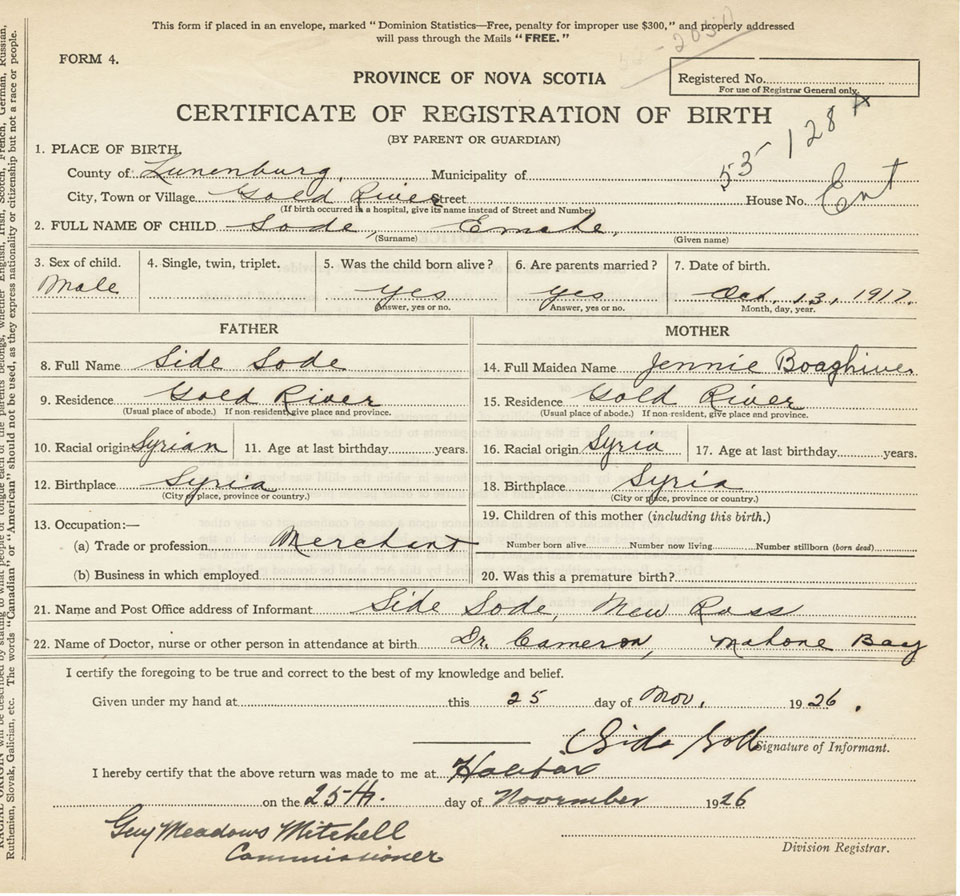 This form if placed in an envelope, marked "Dominion Statistics—Free, penalty for improper use $300," and properly addressed
will pass through the Mails "FREE."
FORM 4.
PROVINCE OF NOVA SCOTIA
Registered No.
For use of Registrar General only.
CERTIFICATE OF REGISTRATION OF BIRTH
(BY PARENT OR GUARDIAN)
53 128
Ent
1. PLACE OF BIRTH.
County of Lunenburg, Municipality of
City, Town or Village Gold River Street House No.
(If birth occurred in a hospital, give its name instead of Street and Number)
2. FULL NAME OF CHILD Sode, Emade,
(Surname) (Given name)
3. Sex of child. 4. Single, twin, triplet. 5. Was the child born alive? 6. Are parents married? 7. Date of birth.
Male yes yes Oct. 13, 1917.
Answer, yes or no. Answer, yes or no. Month, day, year.
FATHER MOTHER
8. Full Name Side Sode 14. Full Maiden Name Jennie Boaghiver
9. Residence Gold River 15. Residence Gold River
(Usual place of abode.) If non resident, give place and province. (Usual place of abode.) If non-resident, give place and province.
10. Racial origin Syrian 11. Age at last birthday years. 16. Racial origin Syria 17. Age at last birthday years.
12. Birthplace Syria 18. Birthplace Syria
(City or place, province or country.) (City or place, province or country.)
13. Occupation:— 19. Children of this mother (including this birth.)
(a) Trade or profession Merchant Number born alive Number now living Number stillborn (born dead)
(b) Business in which employed 20. Was this a premature birth?
21. Name and Post Office address of Informant Side Sode, New Ross
22. Name of Doctor, nurse or other person in attendance at birth Dr. Cameron, Mahone Bay
I certify the foregoing to be true and correct to the best of my knowledge and belief.
Given under my hand at this 25 day of Nov. 1926.
Signature of Informant.
I hereby certify that the above return was made to me at Halifax
on the 25th. day of November 1926
Guy Meadows Mitchell
Commissioner
Division Registrar.
RACIAL ORIGIN will be described by stating to what people or tongue each of the parents belongs, whether English, Irish, Scotch, French, German, Russian,
Ruthenian, Slovak, Galician, etc. The words "Canadian" or "American" should not be used, as they express nationality or citizenship but not a race or people.